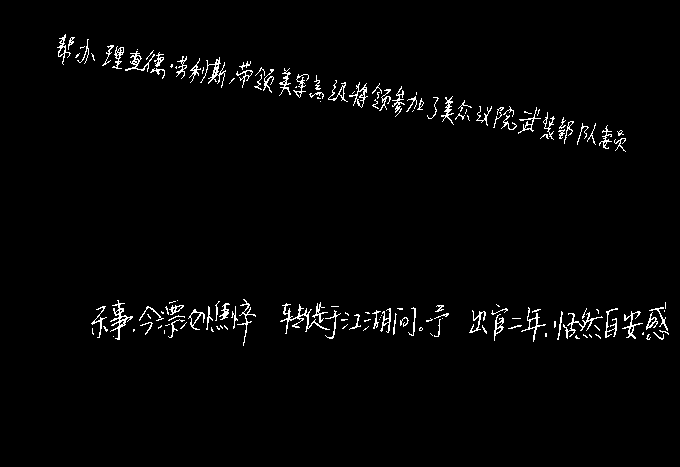 帮办理查德·劳利斯,带领美军高级将领参加了美众议院武装部队委员
乐事.今漂沦憔悴 转徙于江湖间。予 出官二年.恬然自安.感